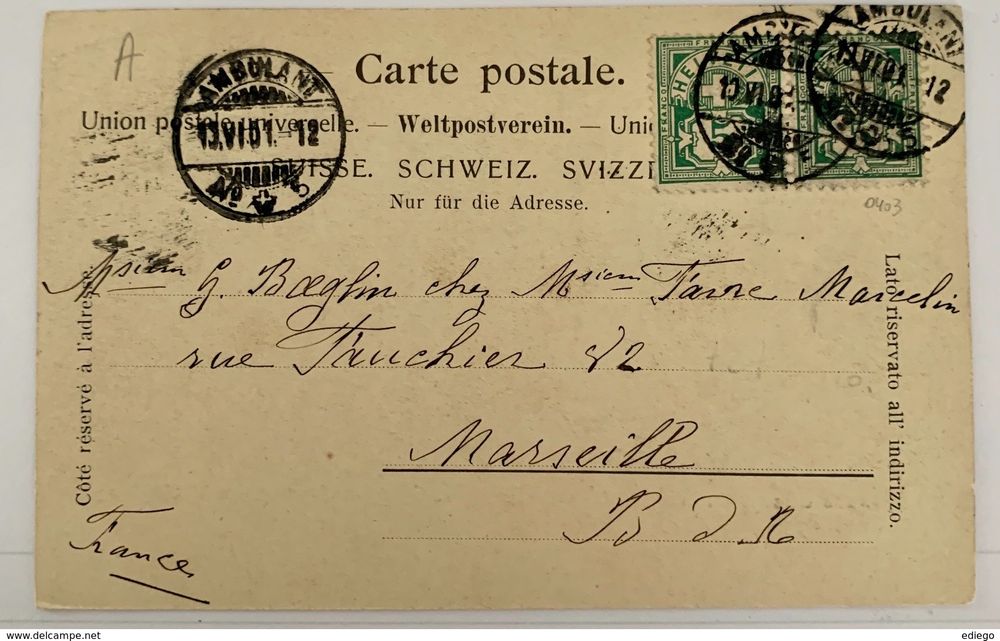 A
Carte postale.
AMBULANT
13.VI.01.-12
No 5
Union postale universelle. — Weltpostverein. — Uni
SUISSE. SCHWEIZ. SVIZZE
Nur für die Adresse.
HELVETIA
FRANCO
AMBULANT
13.VI.01.-12
AMBULANT
13.VI.01.-12
0403
Msieur G. Bœglin chez Msieur Favre Marcelin
rue Fauchier 82
Marseille
B d R
France
Côté réservé à l'adresse
Lato riservato all' indirizzo.
www.delcampe.net
edlego